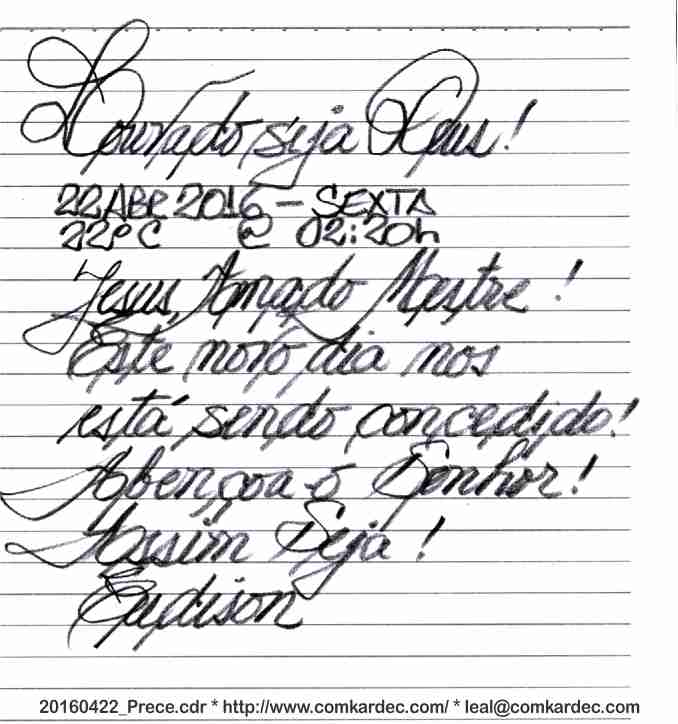 Louvado seja Deus!
22 ABR 2016 - SEXTA
22°C @ 02:20h
Jesus, Amado Mestre!
Este novo dia nos
está sendo concedido!
Abençoa-o Senhor!
Assim Seja!
Eudison
20160422_Prece.cdr * http://www.comkardec.com/ * leal@comkardec.com